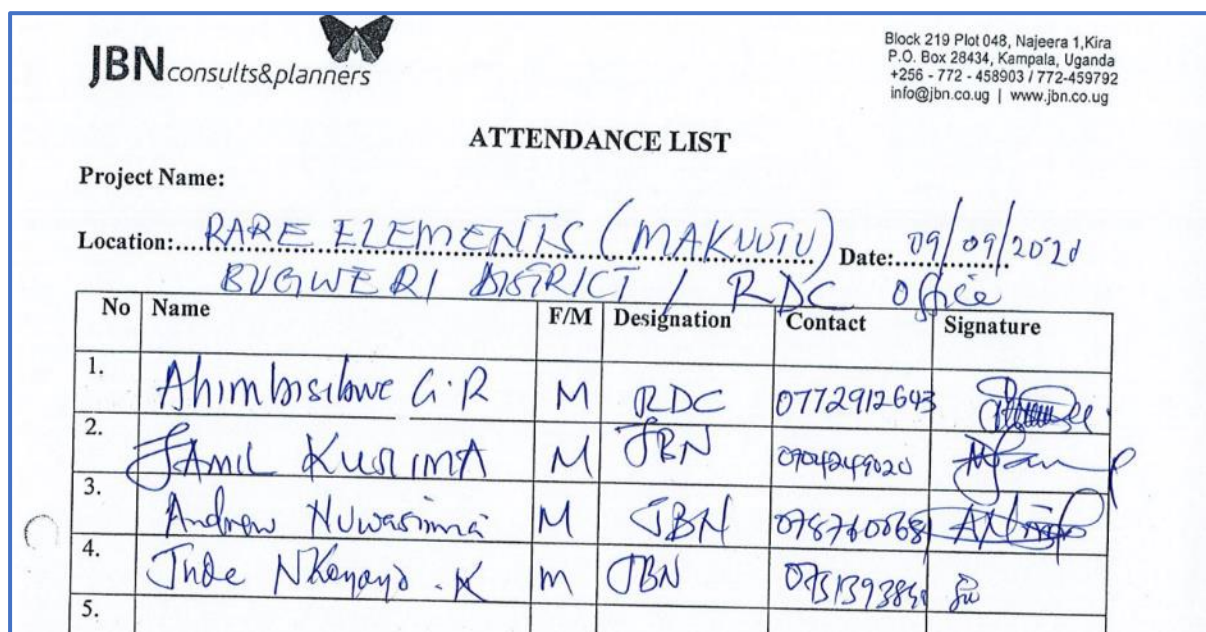 JBN consults&planners
Block 219 Plot 048, Najeera 1,Kira
P.O. Box 28434, Kampala, Uganda
+256 - 772 - 458903 / 772-459792
info@jbn.co.ug | www.jbn.co.ug
ATTENDANCE LIST
Project Name:
Location: RARE ELEMENTS (MAKUUTU) Date: 09/09/2020
BUGWERI DISTRICT / RDC Office
No Name F/M Designation Contact Signature
1. Ahimbisibwe G.R M RDC 0772912643
2. JAMIL M JBN
3. Andrew Nuwasiima M JBN
4. Jude Nkayayo . K m JBN
5.